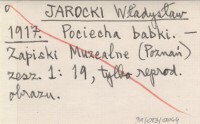 JAROCKI Władysław
1917. Pociecha babki. —
Zapiski Muzealne (Poznań)
zesz. 1: 19, tylko reprod.
obrazu.